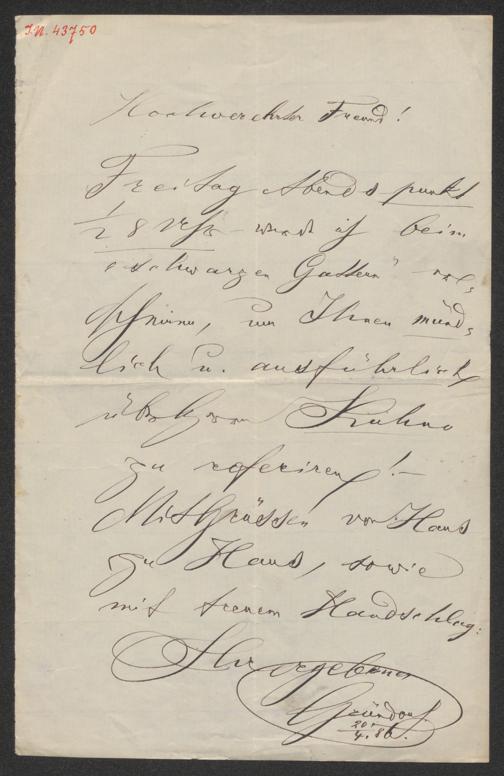 I.N. 43750
Hochverehrter Freund!
Freitag Abends punkt
1/2 8 Uhr werde ich beim
"schwarzen Gattern" er-
scheinen, um Ihnen münd-
lich u. ausführlich
über Herrn Kuhn
zu referiren! –
Mit Grüssen von Haus
zu Haus, sowie
mit treuem Handschlag:
Ihr ergebener
Gründorf.
20/4. 86.